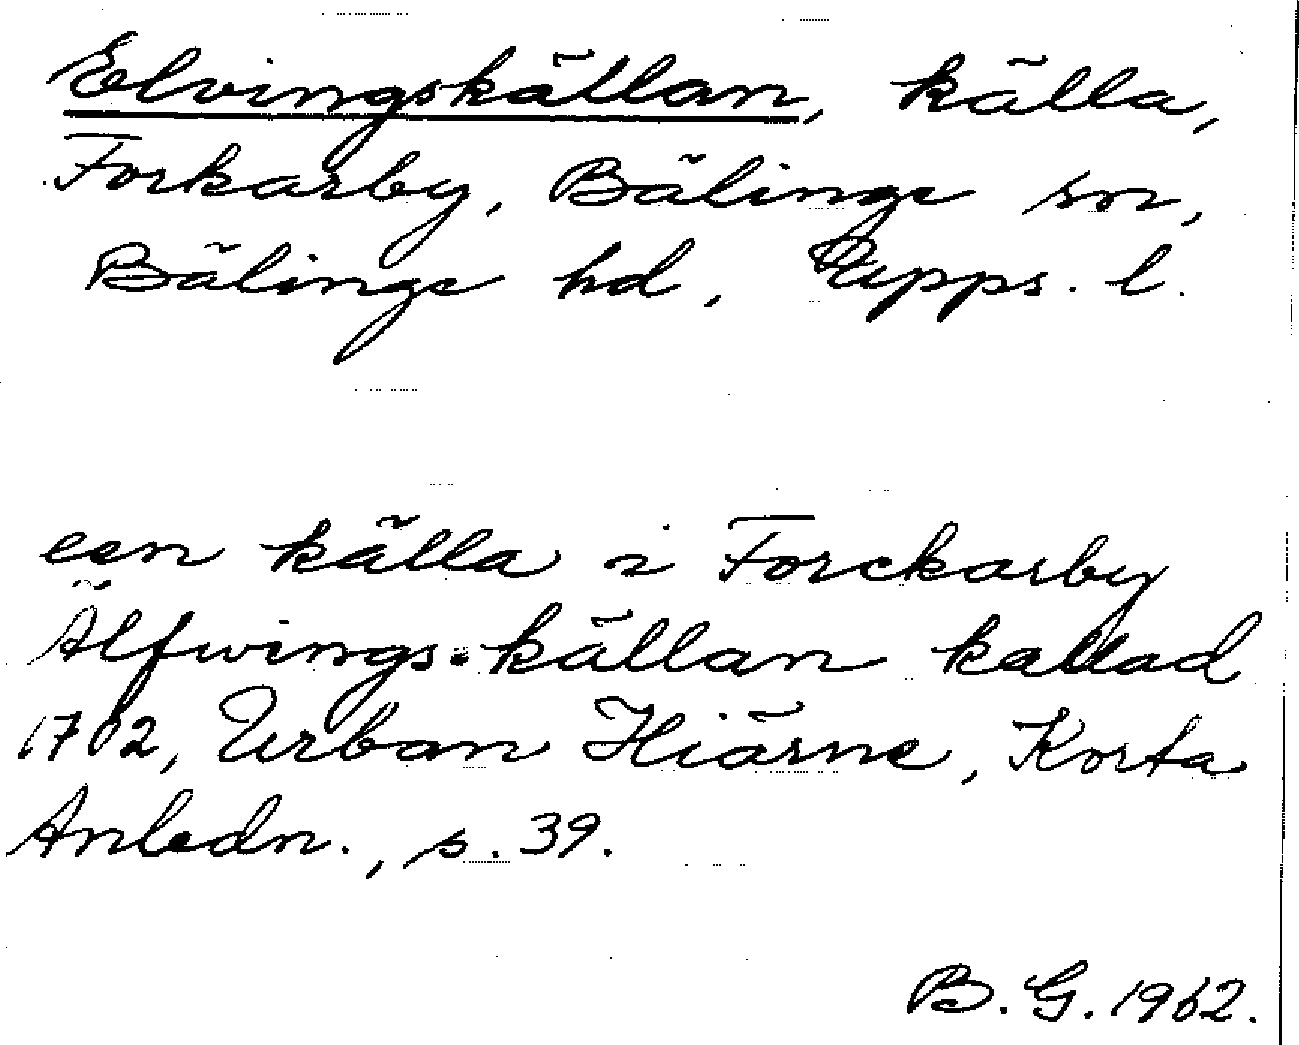 Elvingskällan, källa,
Forkarby, Bälinge sn,
Bälinge hd, Upps. l.
een källa i Forckarby
Älfwings-källan kallad
1702, Urban Hiärne, Korta
Anledn., s. 39.
B. G. 1962.